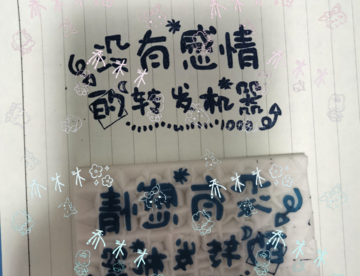 没有感情
的转发机器
1000
乔木木